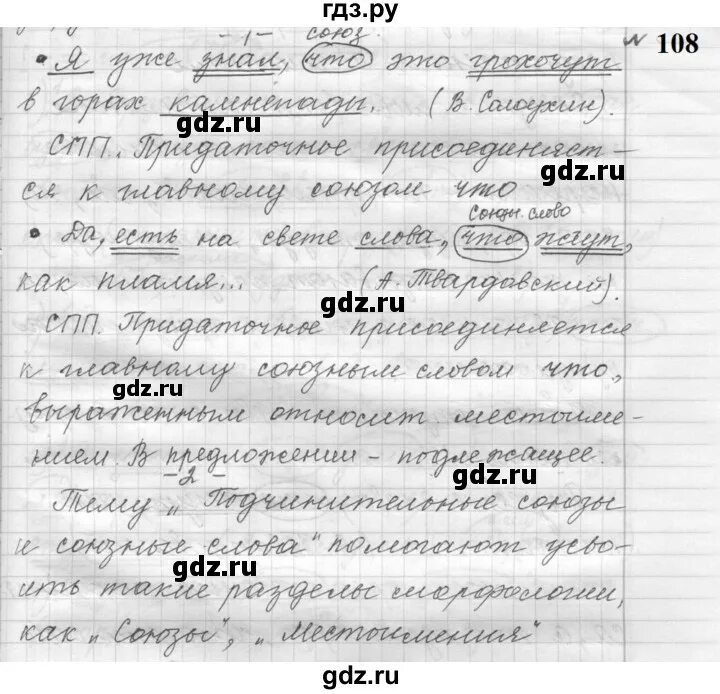 гдз.ру
№ 108
– 1 – союз.
• Я уже знал, что это грохочут
в горах камнепады. (В. Солоухин).
gdz.ru
СПП. Придаточное присоединяет-
gdz.ru
ся к главному союзом что
союзн. слово
• Да, есть на свете слова, что жгут,
gdz.ru
как пламя... (А. Твардовский).
gdz.ru
СПП. Придаточное присоединяется
к главному союзным словом что,
gdz.ru
выраженным относит. местоиме-
нием. В предложении – подлежащее.
– 2 –
gdz.ru
Тему „Подчинительные союзы
и союзные слова" помогают усво-
gdz.ru
ить такие разделы морфологии,
как „Союзы", „Местоимения"
gdz.ru
gdz.ru